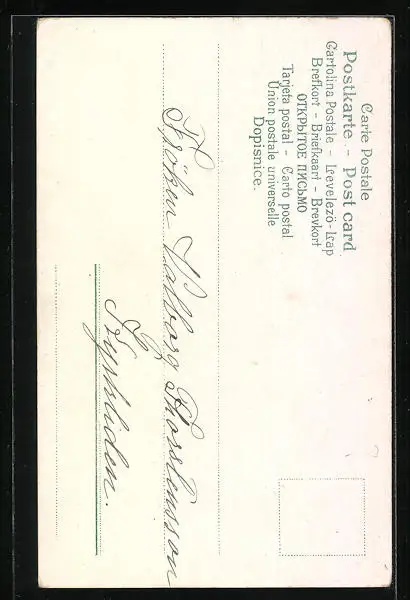 Carte Postale
Postkarte - Post card
Cartolina Postale - Levelező-Lap
Brefkort - Briefkaart - Brevkort
ОТКРЫТОЕ ПИСЬМО
Tarjeta postal - Carto postal
Union postale universelle
Dopisnice.
Fröken Valborg Thorstensson